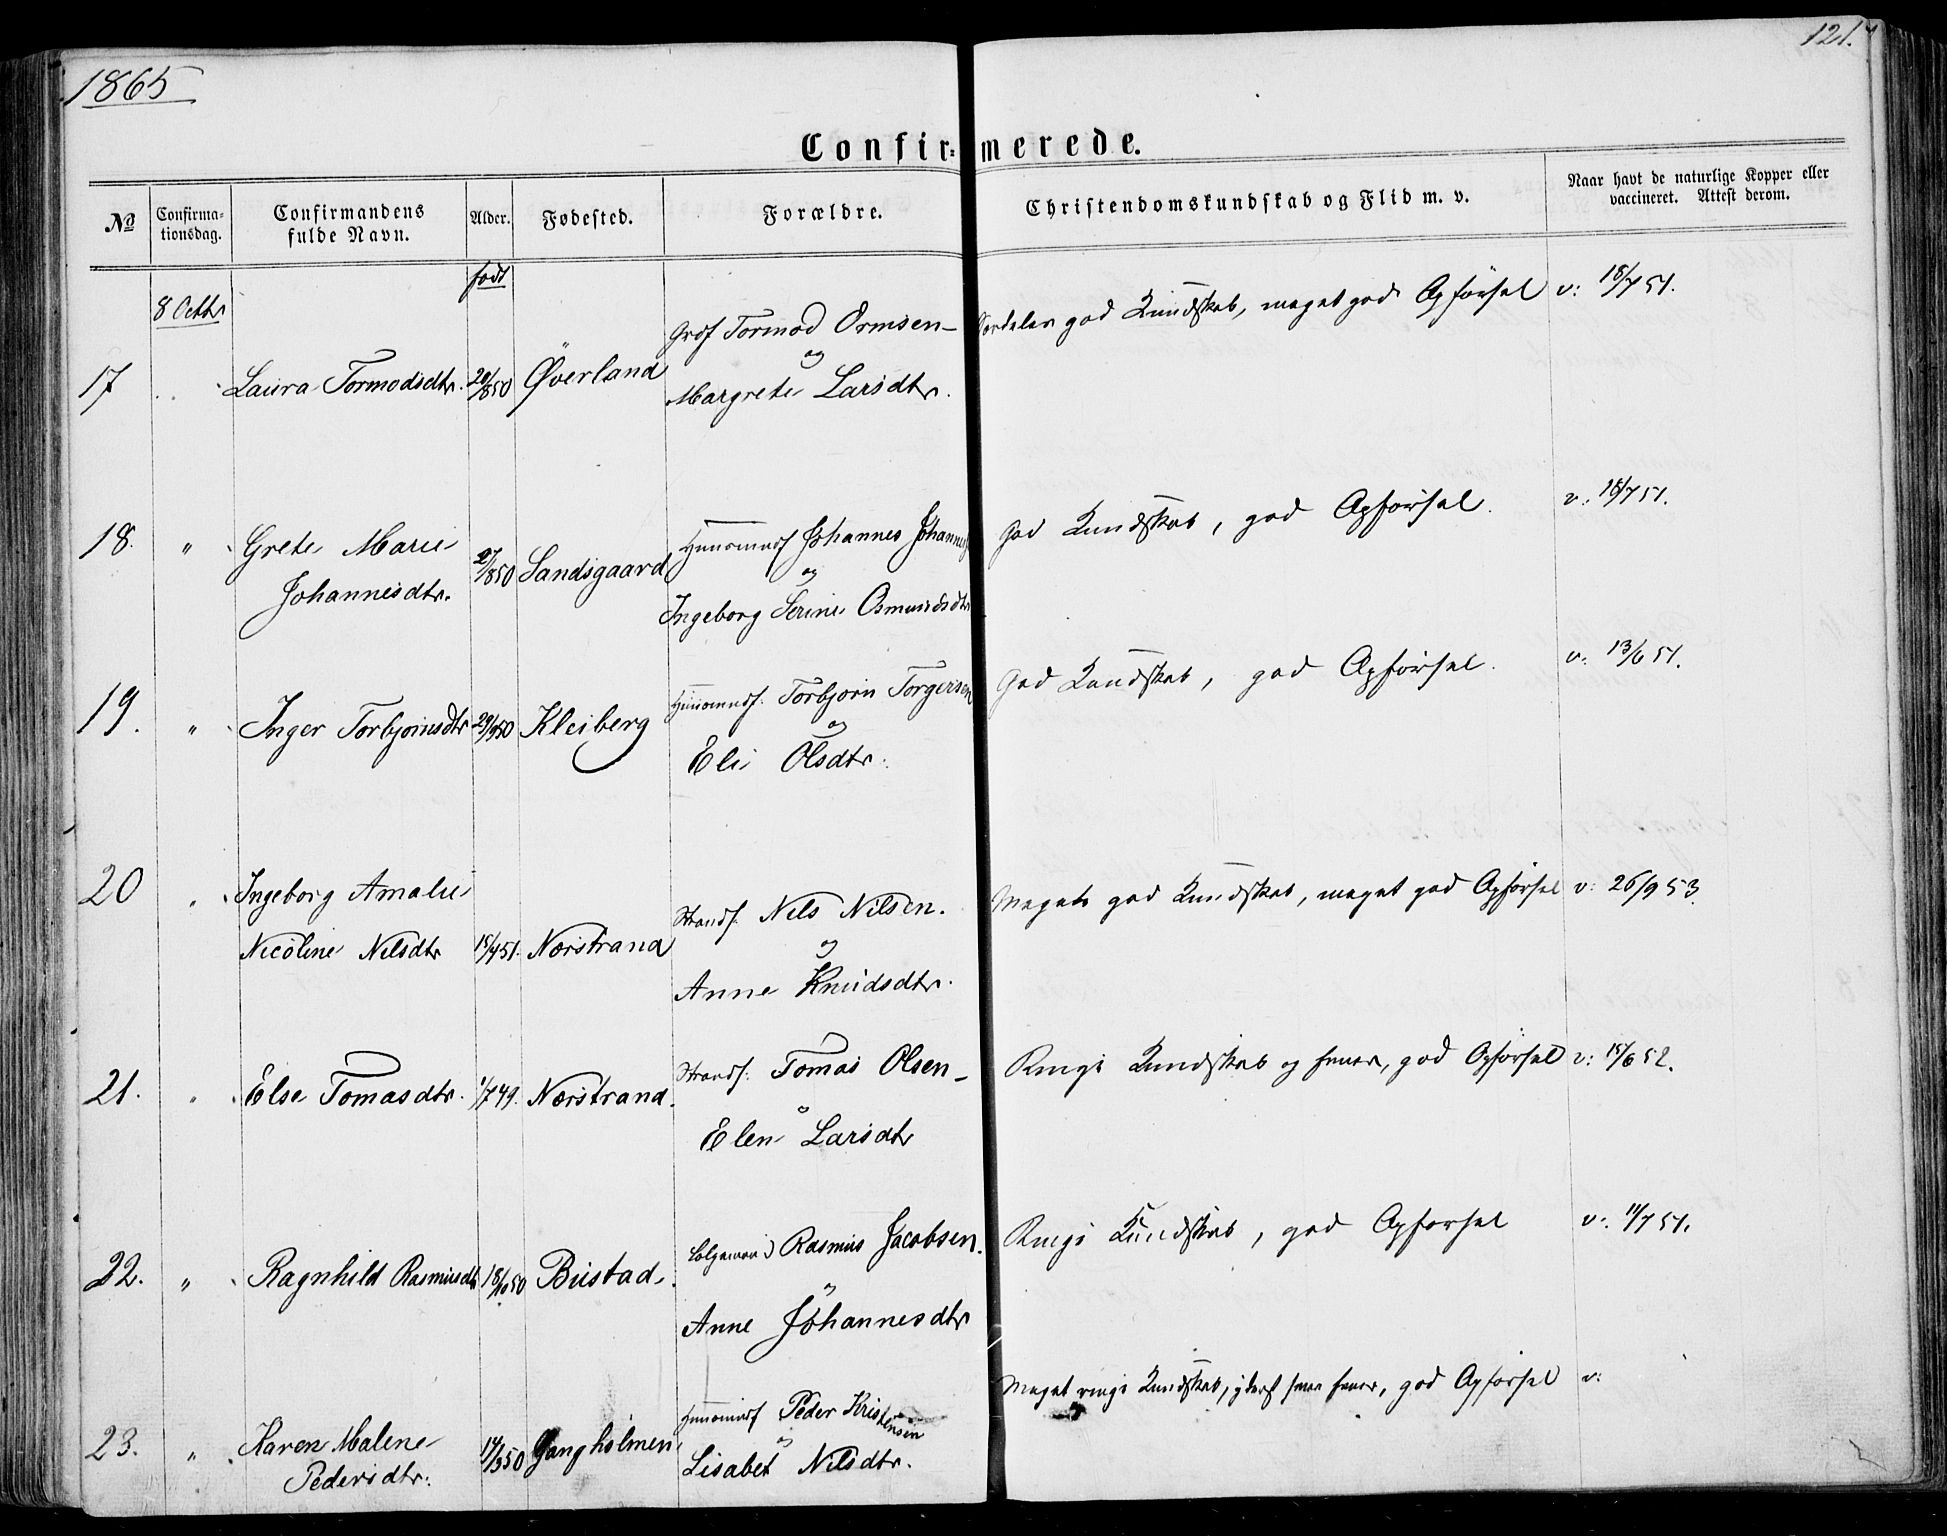 1865
121.
Confir=merede.
No
Confirma-
tionsdag.
Confirmandens
fulde Navn.
Alder.
Fødested.
Forældre.
Christendomskundskab og Flid m. v.
Naar havt de naturlige Kopper eller
vaccineret. Attest derom.
født
8 Octbr
17 Laura Tormodsdtr. 20/850 Øverland
Grdf Tormod Ormsen
og
Margrete Larsdtr.
Særdeles god Kundskab, meget god Opførsel v: 18/7 51.
18. " Grete Marie
Johannesdtr. 27/850 Sandsgaard
Huusmndf Johannes Johannes
og
Ingeborg Serine Osmundsdtr
God Kundskab, god Opførsel. v: 18/7 51.
19. " Inger Torbjørnsdtr 29/950 Kleiberg
Huusmndf. Torbjørn Torgersen
og
Eli Olsdtr.
God Kundskab, god Opførsel. v: 13/6 51.
20 " Ingeborg Amalie
Nicoline Nilsdtr 15/451. Nørstrand
Strandf. Nils Nilsen.
og
Anne Knudsdtr.
Meget god Kundskab, meget god Opførsel v: 26/9 53.
21. " Else Tomasdtr. 1/749. Nørstrand.
Strandf. Tomas Olsen
o
Elen Larsdtr
Ringe Kundskab og Evner, god Opførsel v: 15/6 52.
22. " Ragnhild Rasmusdtr 18/1050 Bustad.
Rasmus Jacobsen.
o
Anne Johannesdtr
Ringe Kundskab, god Opførsel v: 11/7 51.
23. " Karen Malene
Pedersdtr. 14/350 Gangholmen
Huusmndf Peder Kristensen
o
Lisabet Nilsdtr.
Meget ringe Kundskab, yderst svage Evner, god Opførsel v: